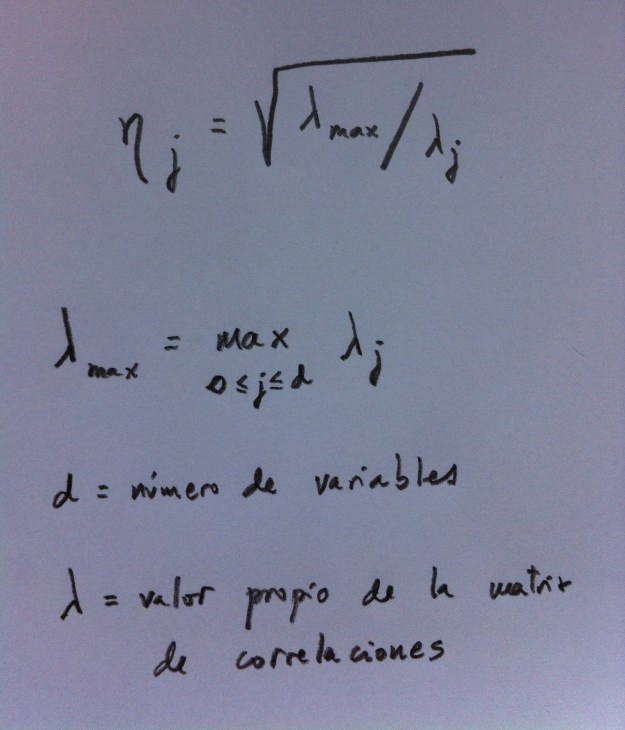 η_j = √(λ_max / λ_j)
λ_max = max λ_j
0 ≤ j ≤ d
d = número de variables
λ = valor propio de la matriz
de correlaciones